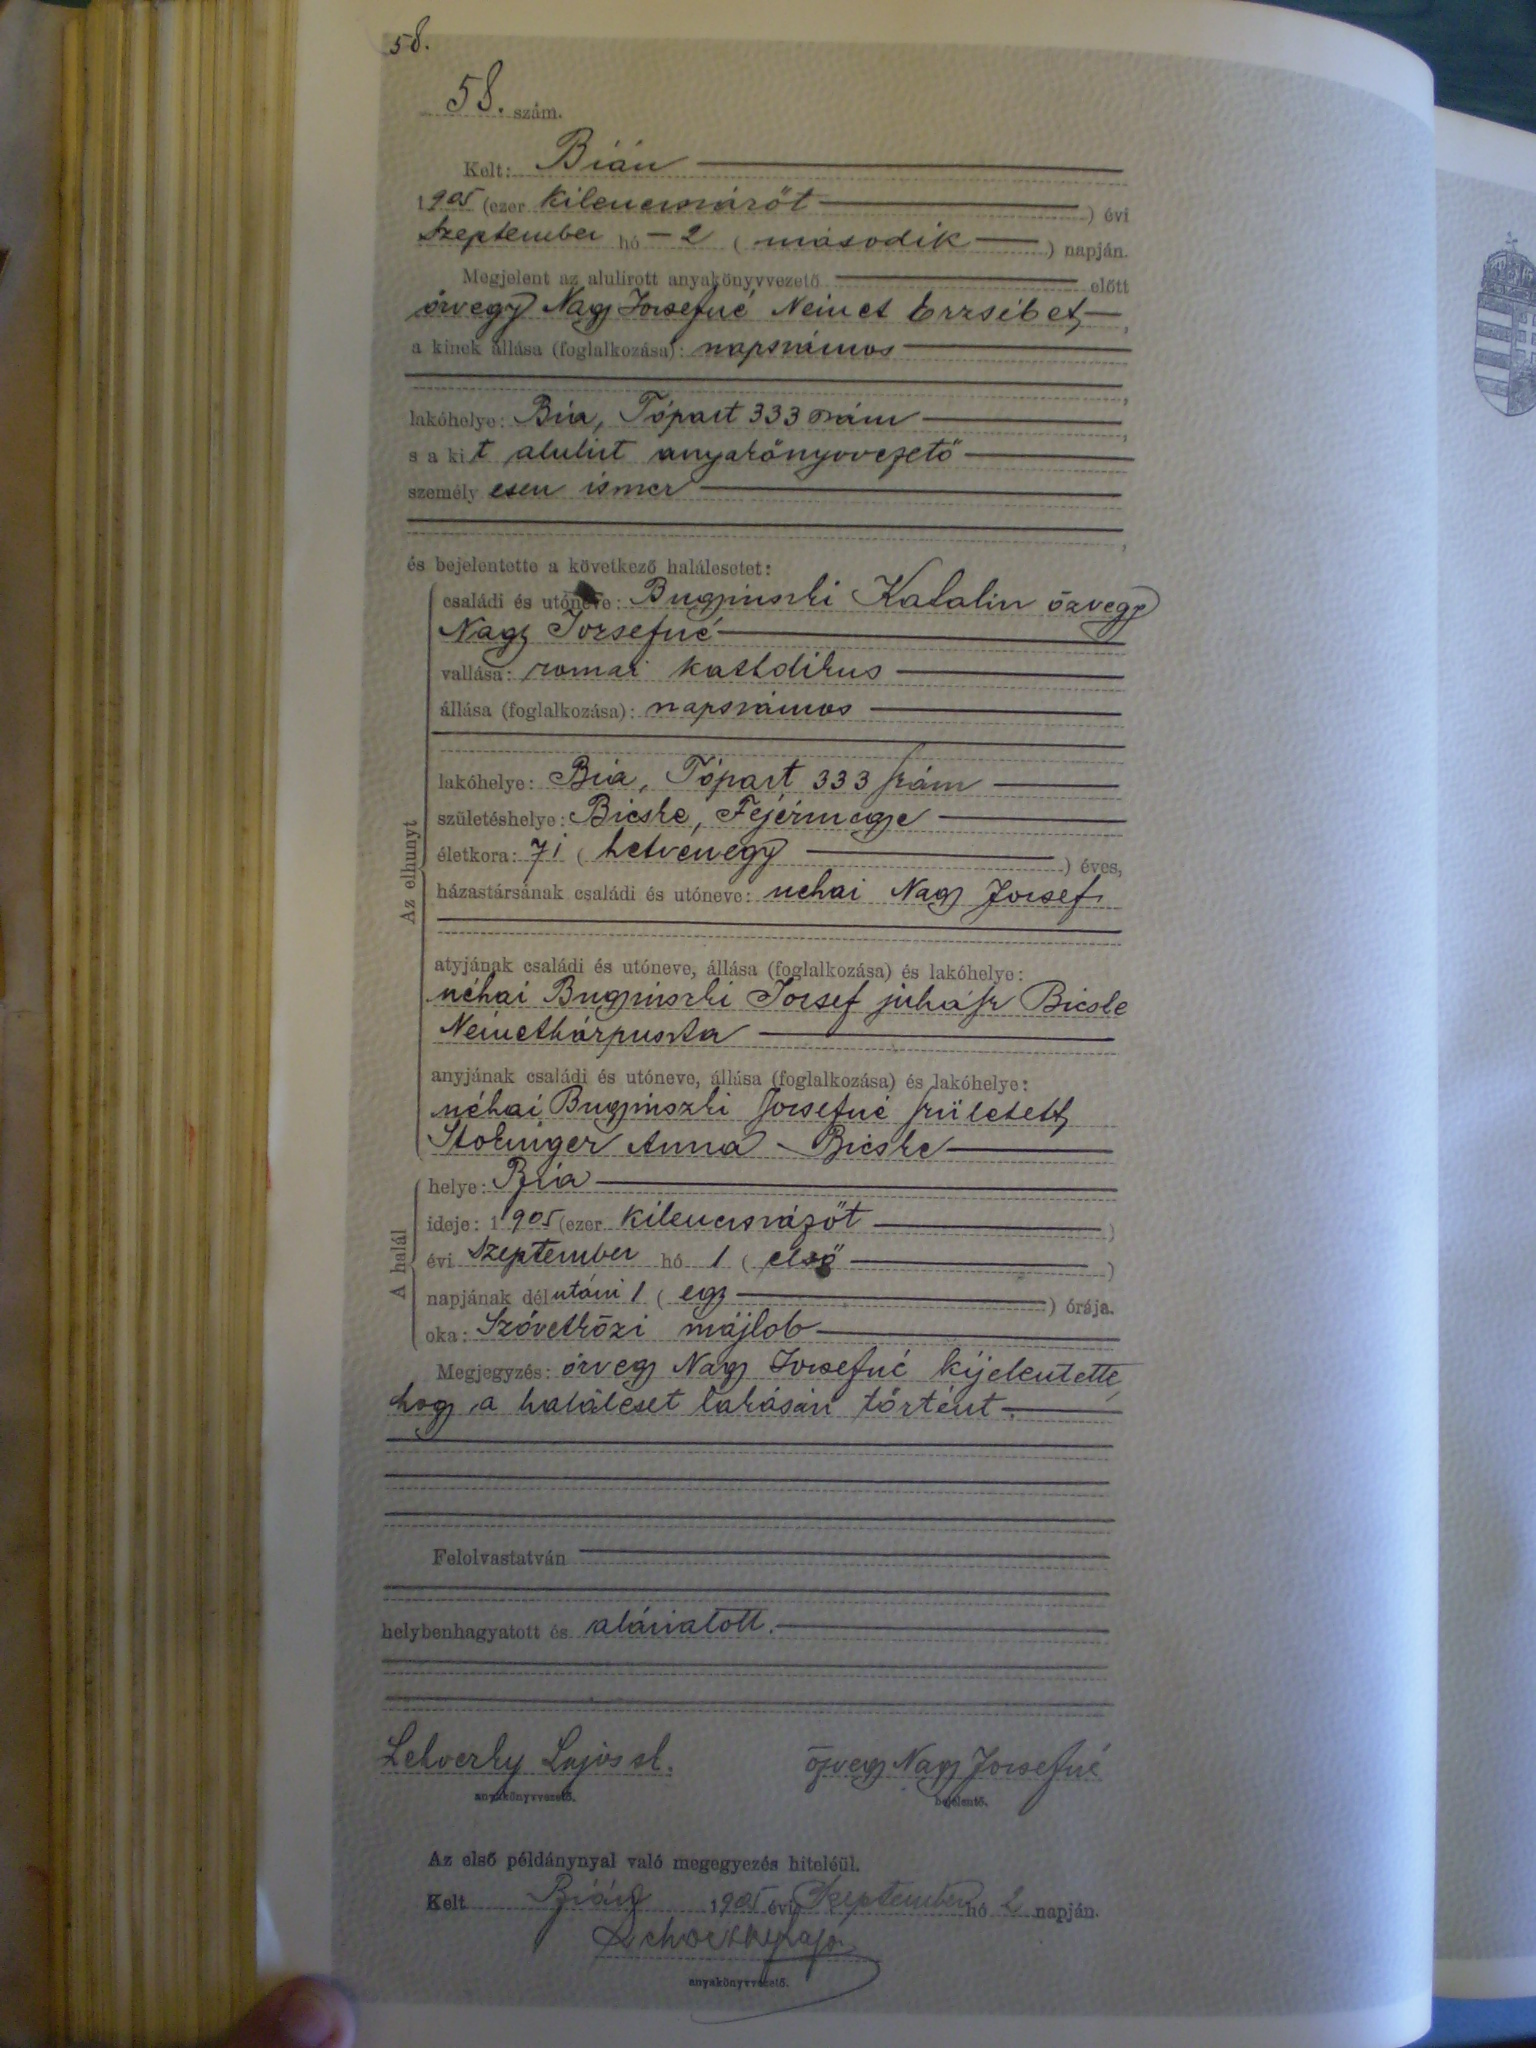 58.
58. szám.
Kelt: Bián
1905 (ezer kilenczszázöt ) évi
Szeptember hó - 2 ( második ) napján.
Megjelent az alulirott anyakönyvvezető előtt
özvegy Nagy Józsefné Német Erzsébet,
a kinek állása (foglalkozása): napszámos
lakóhelye: Bia, Tópart 333 szám ,
s a kit alulirt anyakönyvvezető
személyesen ismer
,
és bejelentette a következő halálesetet:
Az elhunyt
családi és utóneve: Katalin özvegy
Nagy Józsefné
vallása: romai katholikus
állása (foglalkozása): napszámos
lakóhelye: Bia, Tópart 333 szám
születéshelye: Bicske, Fejérmegye
életkora: 71 ( hetvenegy ) éves,
házastársának családi és utóneve: néhai Nagy József
atyjának családi és utóneve, állása (foglalkozása) és lakóhelye:
néhai József juhász Bicske
anyjának családi és utóneve, állása (foglalkozása) és lakóhelye:
néhai Józsefné született
Anna - Bicske
A halál
helye: Bia
ideje: 1905 (ezer kilenczszázöt )
évi Szeptember hó 1 ( első )
napjának délutáni 1 ( egy ) órája.
oka: Szövetközi májlob
Megjegyzés: özvegy Nagy Józsefné kijelentette,
hogy a haláleset lakásán történt.
Felolvastatván
helybenhagyatott és aláiratott.
Lajos
anyakönyvvezető.
özvegy Nagy Józsefné
bejelentő.
Az első példánynyal való megegyezés hiteléül.
Kelt Bián 1905 évi Szeptember hó 2 napján.
anyakönyvvezető.